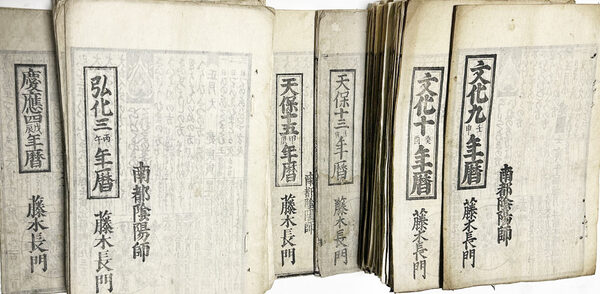 文化九壬申年暦
南都陰陽師
藤木長門
文化十癸酉年暦
藤木長門
天保十三年暦
藤木長門
天保十五甲辰年暦
南都陰陽師
藤木長門
弘化三丙午年暦
南都陰陽師
藤木長門
慶應四戊辰年暦
藤木長門